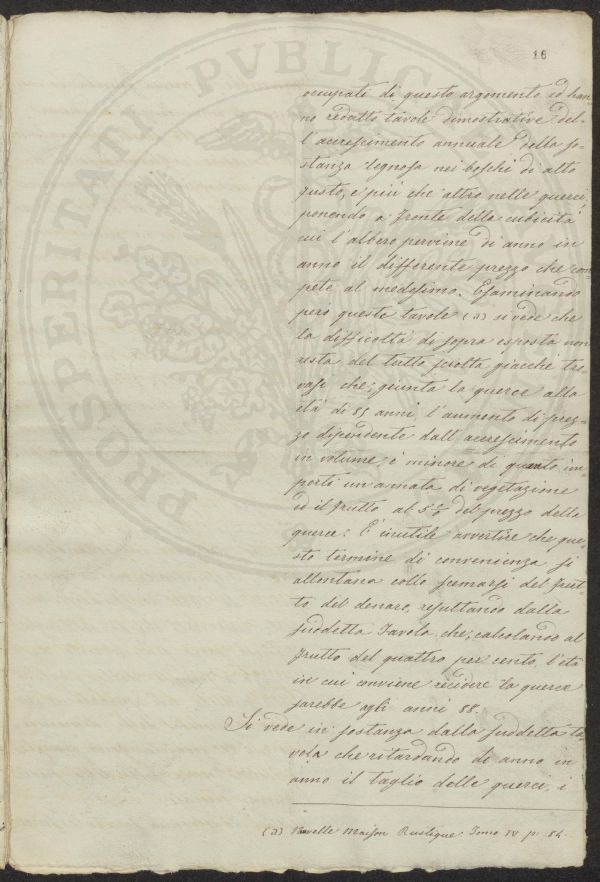 16
occupati di questo argomento ed han=
no redatto tavole dimostrative del=
l'accrescimento annuale della so=
stanza legnosa nei boschi di alto
fusto, e più che altro nelle querci,
ponendo a fronte della cubicità
cui l'albero perviene di anno in
anno il differente prezzo che com=
pete al medesimo. Esaminando
però queste tavole (a) si vede che
la difficoltà di sopra esposta non
resta del tutto sciolta giacchè tro=
vasi che, giunta la querce alla
età di 85 anni l'aumento di prez=
zo dipendente dall'accrescimento
in volume, è minore di quanto im=
porti un'annata di vegetazione
ed il frutto al 5 % del prezzo della
querce. È inutile avvertire che que=
sto termine di convenienza si
allontana collo scemarsi del frut=
to del denaro, resultando dalla
suddetta Tavola che, calcolando al
frutto del quattro per cento, l'età
in cui conviene recidere la querce
sarebbe agli anni 88.
Si vede in sostanza dalla suddetta ta=
vola che ritardando di anno in
anno il taglio delle querci, i
(a) Nouvelle Maison Rustique. Tomo IV p. 84.
PROSPERITATI PUBLICAE